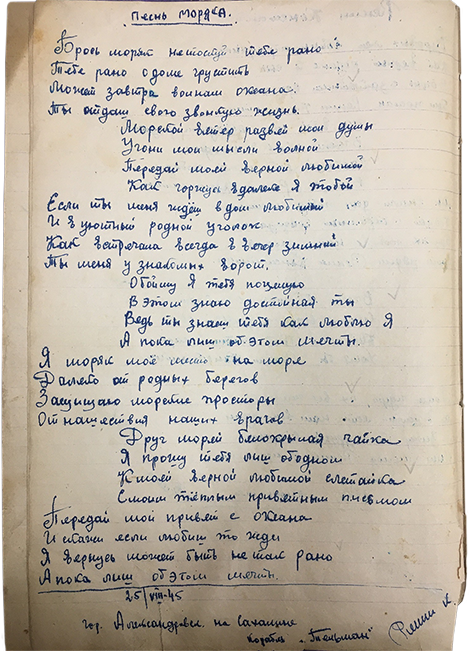 Песнь моряка.
Брось моряк не тоскуй тебе рано
Тебе рано о доме грустить
Может завтра волнам океана
Ты отдаш свою звонкую жизнь.
Морской ветер развей мои думы
Угони мои мысли волной
Передай моей верной любимой
Как горжусь вдалеке я тобой
Если ты меня ждёш в дом любимый
И в уютный родной уголок
Как встречала всегда в вечер зимний
Ты меня у знакомых ворот.
Обойму Я тебя поцелую
В этом знаю достойная ты
Ведь ты знаеш тебя как люблю Я
А пока лиш об этом мечты.
Я моряк моё место на море
Далеко от родных берегов
Защищаю морские просторы
От нашествия наших врагов
Друг морей белокрылая чайка
Я прошу тебя лиш ободном
К моей верной любимой слетайка
С моим тёплым приветным письмом
Передай мой привет с Океана
И скажи если любиш то жди
Я вернусь может быть не так рано
А пока лиш об этом мечты.
25/VIII-45
гор. Александровск. на Сахалине
корабль "Тельман"